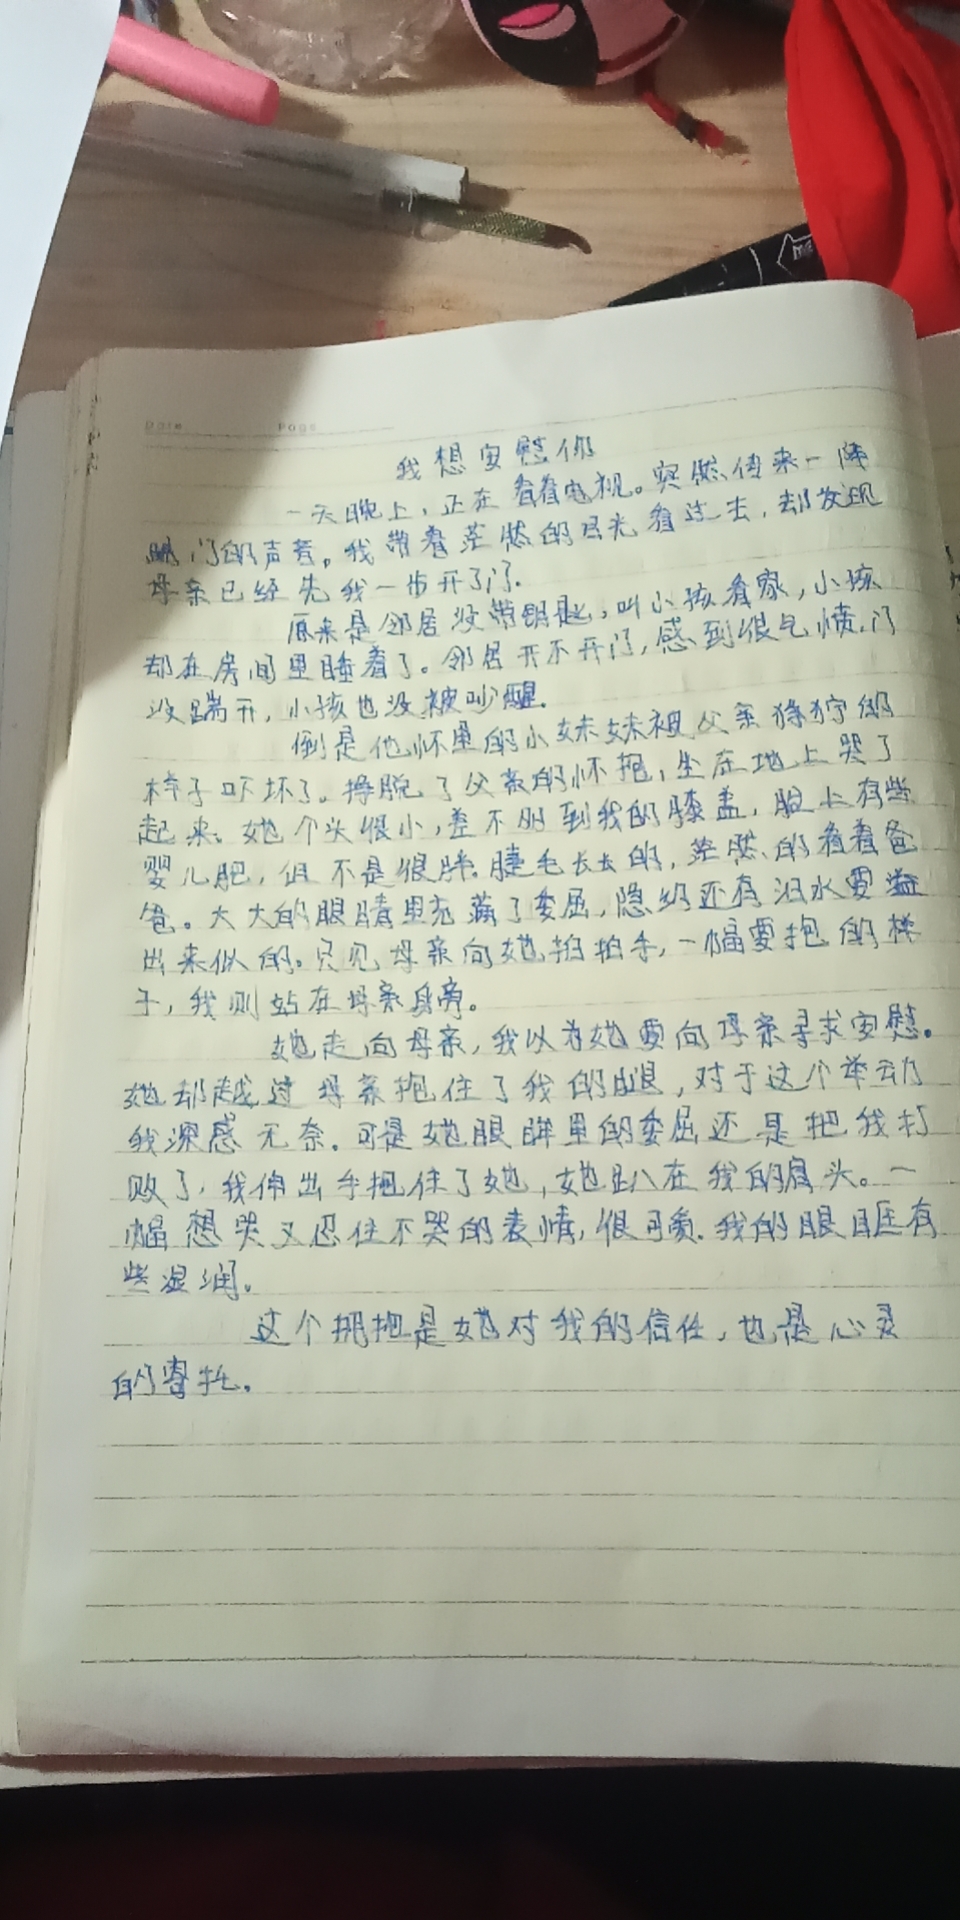 Date Page
我想安慰你
一天晚上，正在看着电视。突然传来一阵
踹门的声音。我带着茫然的目光看过去，却发现
母亲已经先我一步开了门.
原来是邻居没带钥匙，叫小孩看家，小孩
却在房间里睡着了。邻居开不开门，感到很气愤，门
没踹开，小孩也没被吵醒.
倒是他怀里的小妹妹被父亲狰狞的
样子吓坏了。挣脱了父亲的怀抱，坐在地上哭了
起来。她个头很小，差不多到我的膝盖，脸上有些
婴儿肥，但不是很胖。睫毛长长的，茫然的看着爸
爸。大大的眼睛里充满了委屈，隐约还有泪水要溢
出来似的。只见母亲向她拍拍手，一幅要抱的样
子，我则站在母亲身旁。
她走向母亲，我以为她要向母亲寻求安慰。
她却越过母亲抱住了我的腿，对于这个举动
我深感无奈。可是她眼眸里的委屈还是把我打
败了，我伸出手抱住了她，她趴在我的肩头。一
幅想哭又忍住不哭的表情，很可爱。我的眼眶有
些湿润。
这个拥抱是她对我的信任，也是心灵
的寄托。